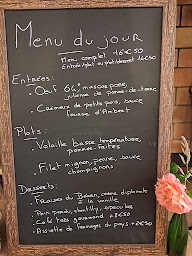 Menu du jour
Menu complet 16€50
Entrée/plat ou plat/dessert 14€50
Entrées:
. Oeuf 64°, mascarpone,
julienne de pomme-de-terre
. Crémeux de petits pois, sauce
fourme d'Ambert
Plats:
. Volaille basse température,
pommes-frites
. Filet mignon, penne, sauce
champignons
Desserts:
. Fraises du Behen, crème diplomate
à la vanille
. Pain perdu, chantilly, speculos
. Café très gourmand +2€50
. Assiette de fromages du pays +2€50